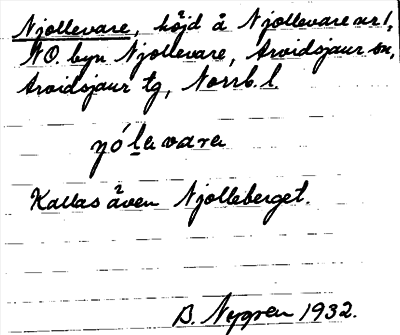 Njollevare, höjd å Njollevare nr 1,
NO. byn Njollevare, Arvidsjaur sn,
Arvidsjaur tg, Norrb. l.
njólavara
Kallas även Njolleberget.
B. Nygren 1932.